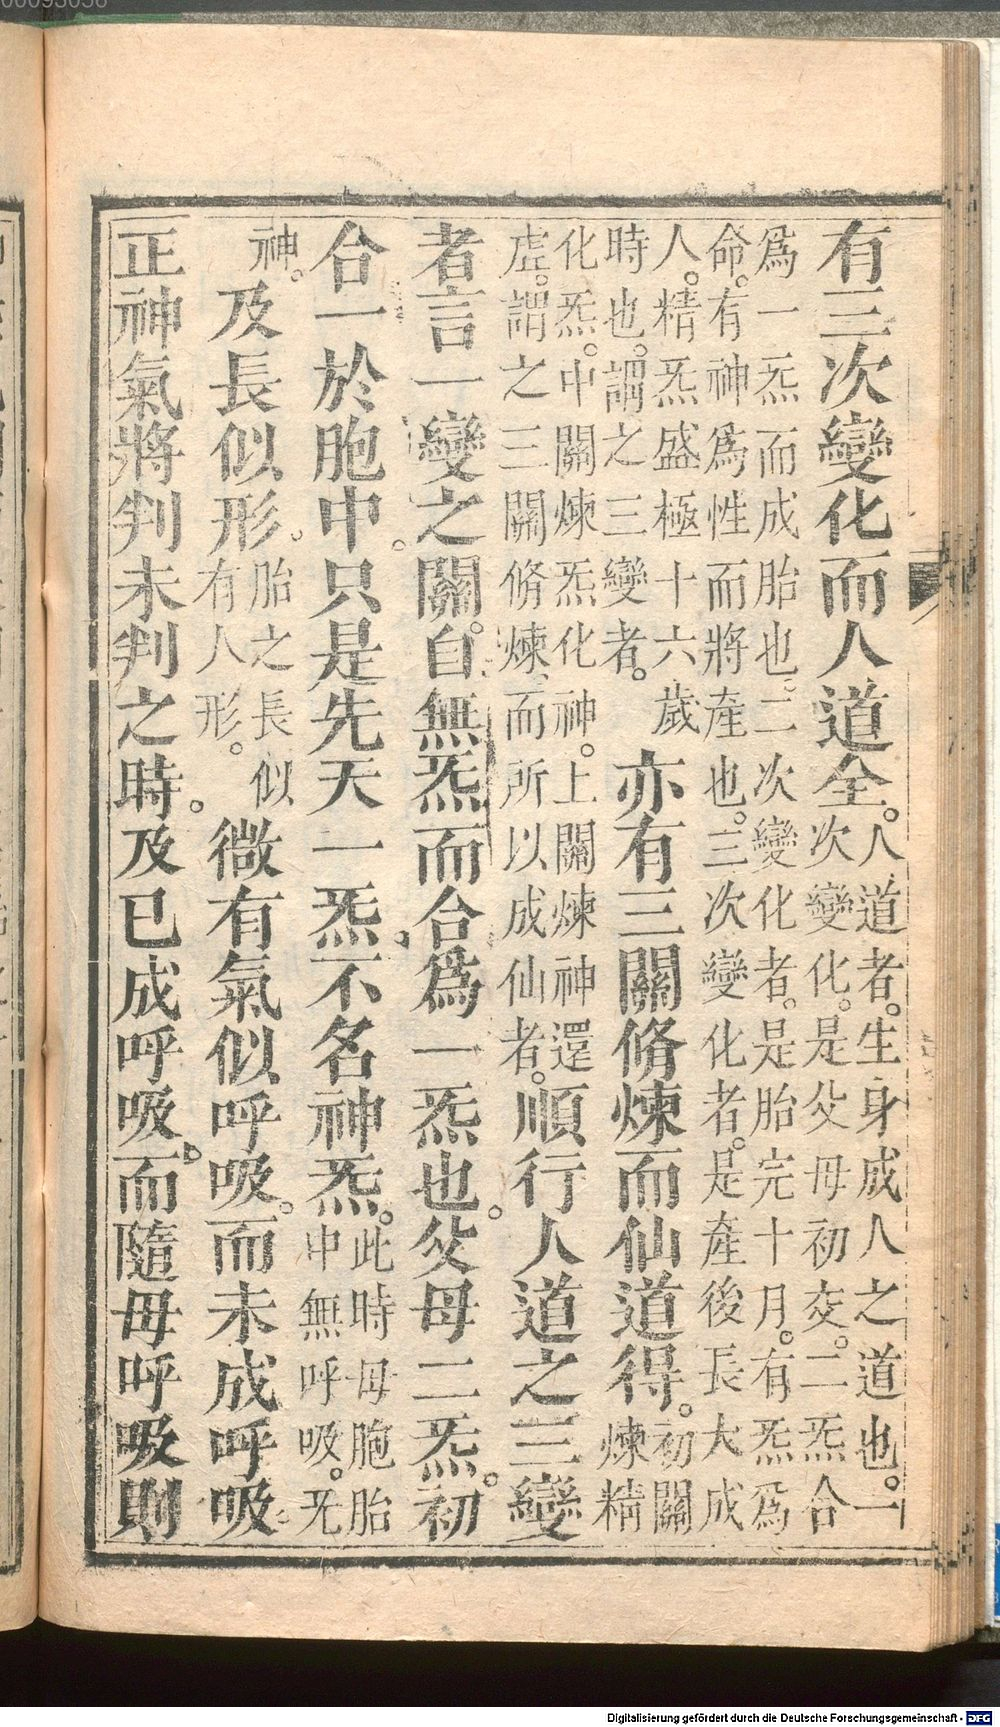 有三次變化而人道全。
人道者。生身成人之道也。一
次變化。是父母初交。二炁合
爲一炁而成胎也。二次變化者。是胎完十月。有炁爲
命。有神爲性而將產也。三次變化者。是產後長大成
人。精炁盛極十六歲
時也。謂之三變者。
亦有三關脩煉而仙道得。
初關
煉精
化炁。中關煉炁化神。上關煉神還
虛。謂之三關脩煉、而所以成仙者。
順行人道之三變
者言一變之關。自無炁而合爲一炁也。父母二炁。初
合一於胞中。只是先天一炁。不名神炁。
此時母胞胎
中無呼吸。无
神。
及長似形。
胎之長似
有人形。
微有氣似呼吸。而未成呼吸
正神氣將判未判之時。及已成呼吸。而隨母呼吸則
Digitalisierung gefördert durch die Deutsche Forschungsgemeinschaft - DFG